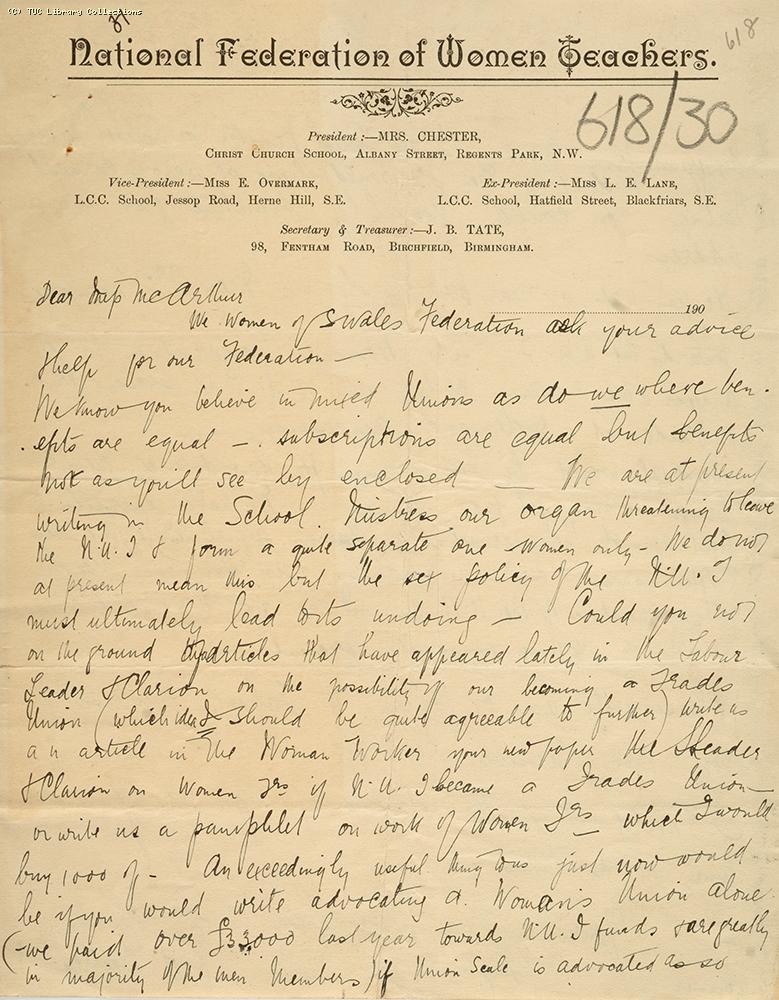 (C) TUC Library Collections
618
National Federation of Women Teachers.
618/30
President :—MRS. CHESTER,
CHRIST CHURCH SCHOOL, ALBANY STREET, REGENTS PARK, N.W.
Vice-President :—MISS E. OVERMARK,
L.C.C. SCHOOL, JESSOP ROAD, HERNE HILL, S.E.
Ex-President :—MISS L. E. LANE,
L.C.C. SCHOOL, HATFIELD STREET, BLACKFRIARS, S.E.
Secretary & Treasurer :—J. B. TATE,
98, FENTHAM ROAD, BIRCHFIELD, BIRMINGHAM.
190
Dear Miss McArthur
We Women of S Wales Federation ask your advice
& help for our Federation —
We know you believe in mixed Unions as do we where ben-
efits are equal — subscriptions are equal but benefits
not as you'll see by enclosed — We are at present
writing in the School Mistress our organ threatening to leave
the N.U.T & form a quite separate one women only — We do not
at present mean this but the sex policy of the N.U.T
must ultimately lead to its undoing — Could you not
on the ground articles that have appeared lately in the Labour
Leader & Clarion on the possibility of our becoming a Trades
Union (which idea I should be quite agreeable to further) write us
an article in The Woman Worker your new paper the Leader
& Clarion on Women Trs if N.U.T became a Trades Union —
or write us a pamphlet on work of Women Trs — which I would
buy 1000 of — An exceedingly useful thing to us just now would
be if you would write advocating a Woman's Union alone
(we paid over £33000 last year towards N.U.T funds & are greatly
in majority of the men Members) if Union Scale is advocated as so